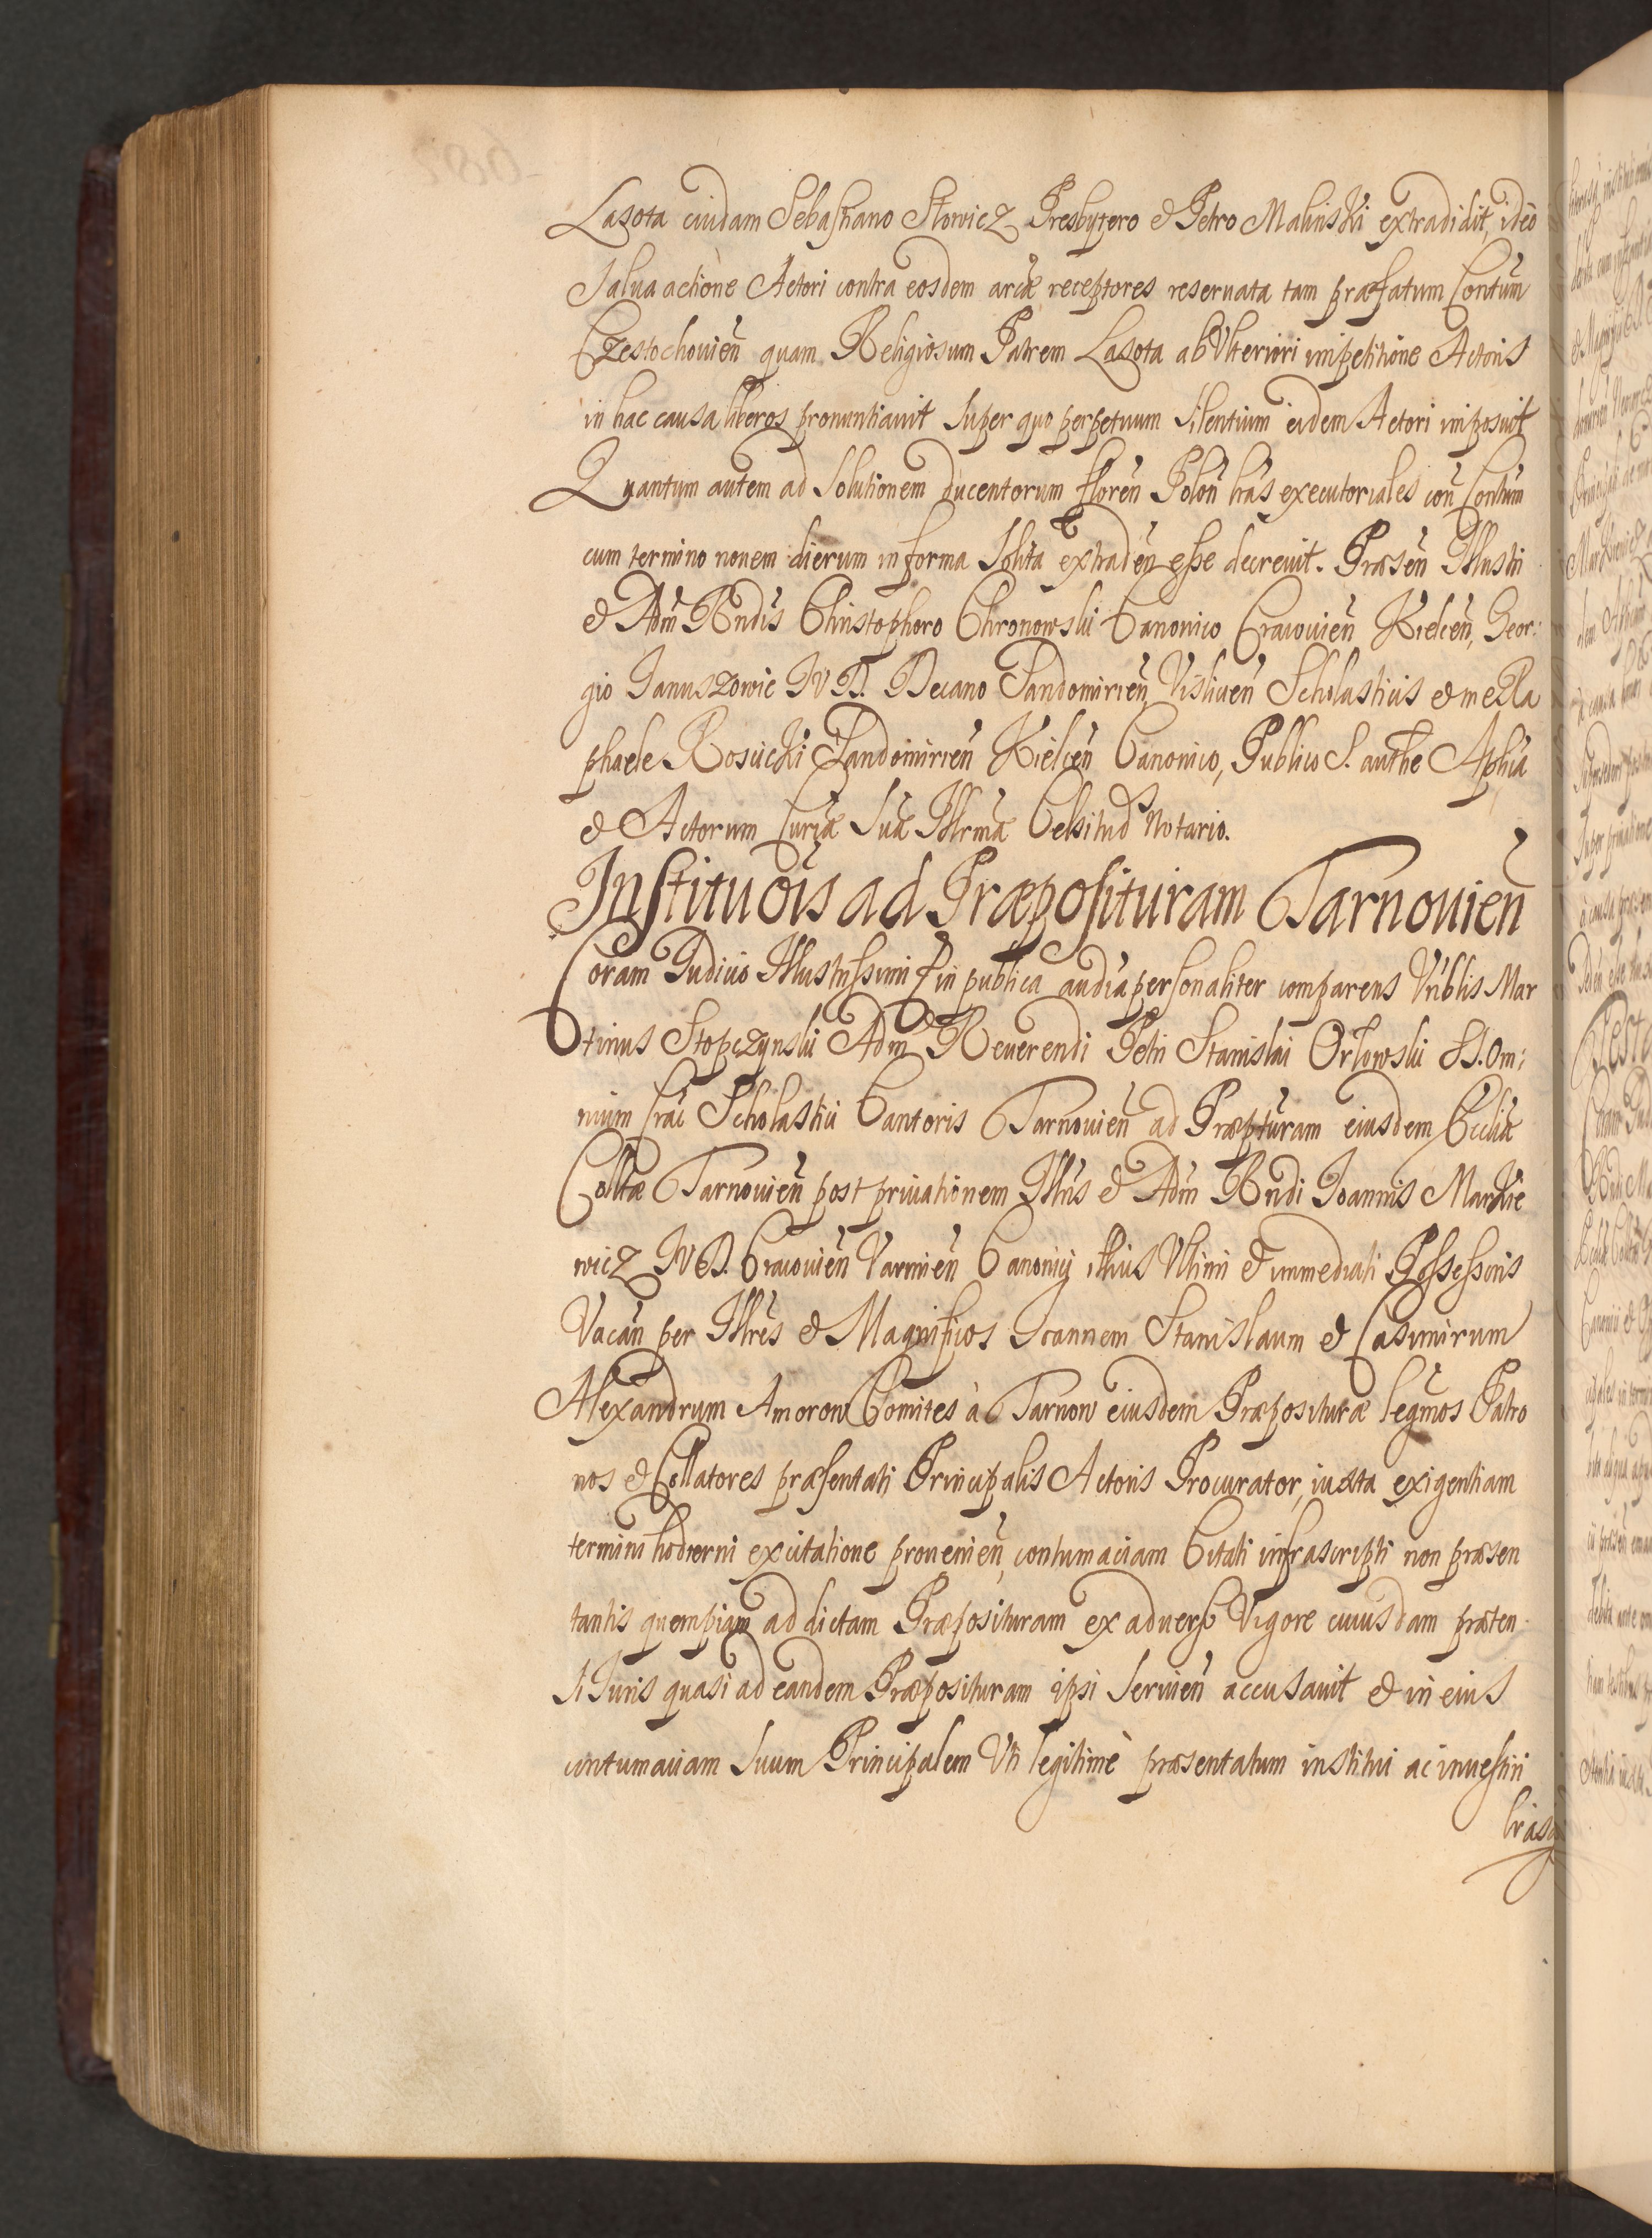 Lasota cuidam Sebastiano Słowicz Presbytero & Petro Malinski extradidit, ideo
Salua actione Actori contra eosdem arcæ receptores reseruata tam præfatum Contũm
Czestochouieñ quam Religiosum Patrem Lasota ab Vlteriori impetitione Actoris
in hac causa liberos pronuntiauit Super quo perpetuum Silentium eidem Actori imposuit
Quantum autem ad Solutionem ducentorum floreñ Poloñ lrãs executoriales coñ Contũm
cum termino nonem dierum in forma Solita extradeñ esse decreuit. Præseñ Illustri
& Adm̃ Rndis Christophoro Chronowski Canonico Cracouieñ Kielceñ, Geor:
gio Januszowic JVD. Decano Sandomirieñ, Visliceñ Scholasticis & me Ra
phaele Rosicki Sandomirieñ Kielceñ Canonico, Publico S. authe Aplica
& Actorum Curiæ Suæ Illrmæ Celsitud Notario.
Instituõis ad Præposituram Tarnouieñ
Coram Judicio Illustrissimi & in publica audĩa personaliter comparens Vñblis Mar
tinus Stopczynski Adm̃ Reuerendi Petri Stanislai Orłowski SS. Om:
nium Craĩ Scholastici Cantoris Tarnouieñ ad Præpturam eiusdem Eccliæ
Colltæ Tarnouieñ post priuationem Illris & Adm̃ Rndi Joannis Markie
wicz JVD. Cracouieñ Varmieñ Canonici illius Vltimi & immediati Possessoris
Vacañ per Illres & Magnificos Joannem Stanislaum & Casimirum
Alexandrum Amorow Comites à Tarnow eiusdem Præposituræ legmos Patro
nos & Collatores præsentati Principalis Actoris Procurator, iuxta exigentiam
termini hodierni ex citatione prouenieñ, contumaciam Citati infrascripti non præsen
tantis quempiam ad dictam Præposituram ex aduerso Vigore cuiusdam præten
si Juris quasi ad eandem Præposituram ipsi Seruieñ accusauit & in eius
contumaciam Suum Principalem Vti legitimè præsentatum institui ac inuestiri